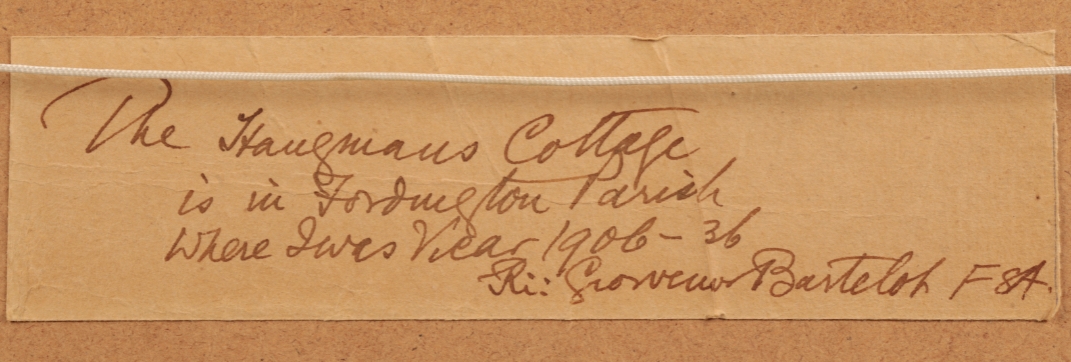 The Hangmans Cottage
is in Fordington Parish
Where I was Vicar 1906-36
Ri: Grosvenor Bartelot FSA.